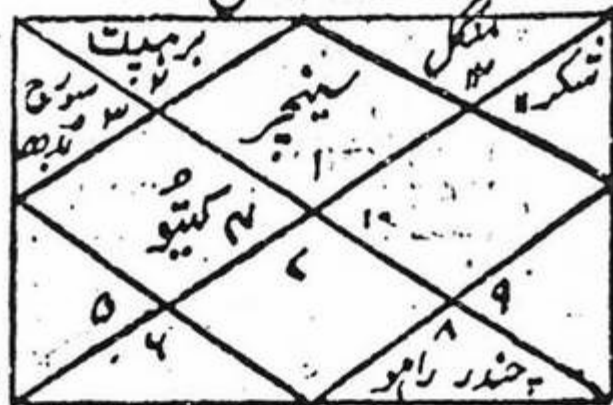 برہسپت ۲
منگل ۱۲
شکر ۱۱
سورج ۳
بدھ
سنیچر
۱
۴ کیتو
۱۰
۷
۵
۶
۹
۸
چندر راہو